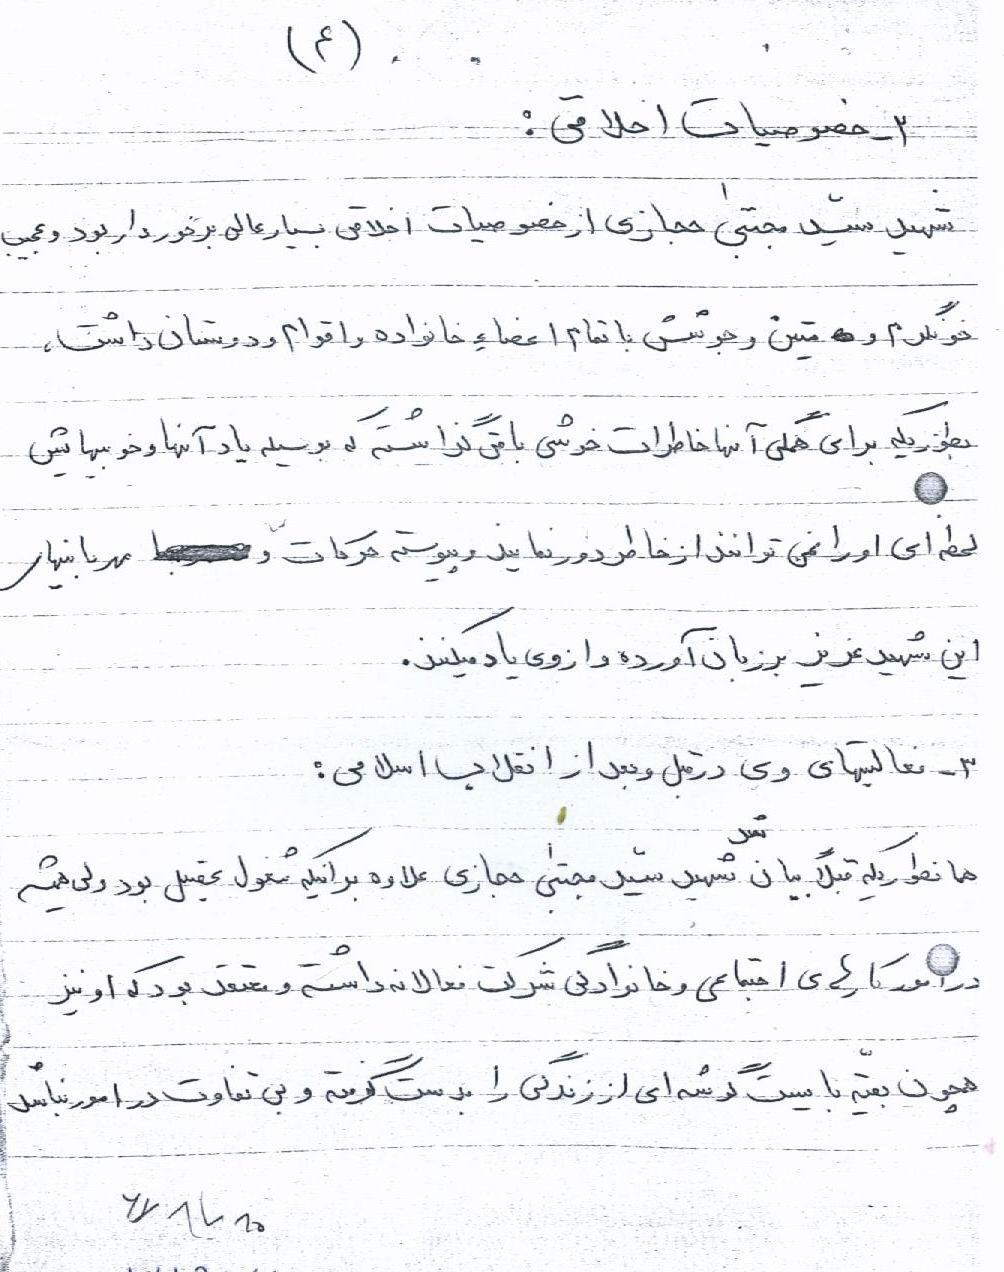 (۴)
۲ـ خصوصیات اخلاقی :
شهید سیّد مجتبیٰ حجازی از خصوصیات اخلاقی بسیار عالی برخوردار بود و عجیب
خونگرم و متین و جوشش با تمام اعضاء خانواده و اقوام و دوستان داشت،
بطوریکه برای همگی آنها خاطرات خوشی باقی گذاشته که بوسیله یاد آنها و خوبیهایش
لحظه‌ای او را نمی توانند از خاطر دور نمایند و پیوسته حرکات و مهربانیهای
این شهید عزیز بر زبان آورده و از وی یاد میکنند.
۳ـ فعالیتهای وی در قبل و بعد از انقلاب اسلامی :
همانطوریکه قبلاً بیان شد شهید سیّد مجتبیٰ حجازی علاوه بر اینکه مشغول تحصیل بود ولی همیشه
در امور کارهای اجتماعی و خانوادگی شرکت فعالانه داشته و معتقد بود که او نیز
همچون بقیّه بایست گوشه‌ای از زندگی را بدست گرفته و بی تفاوت در امور نباشد